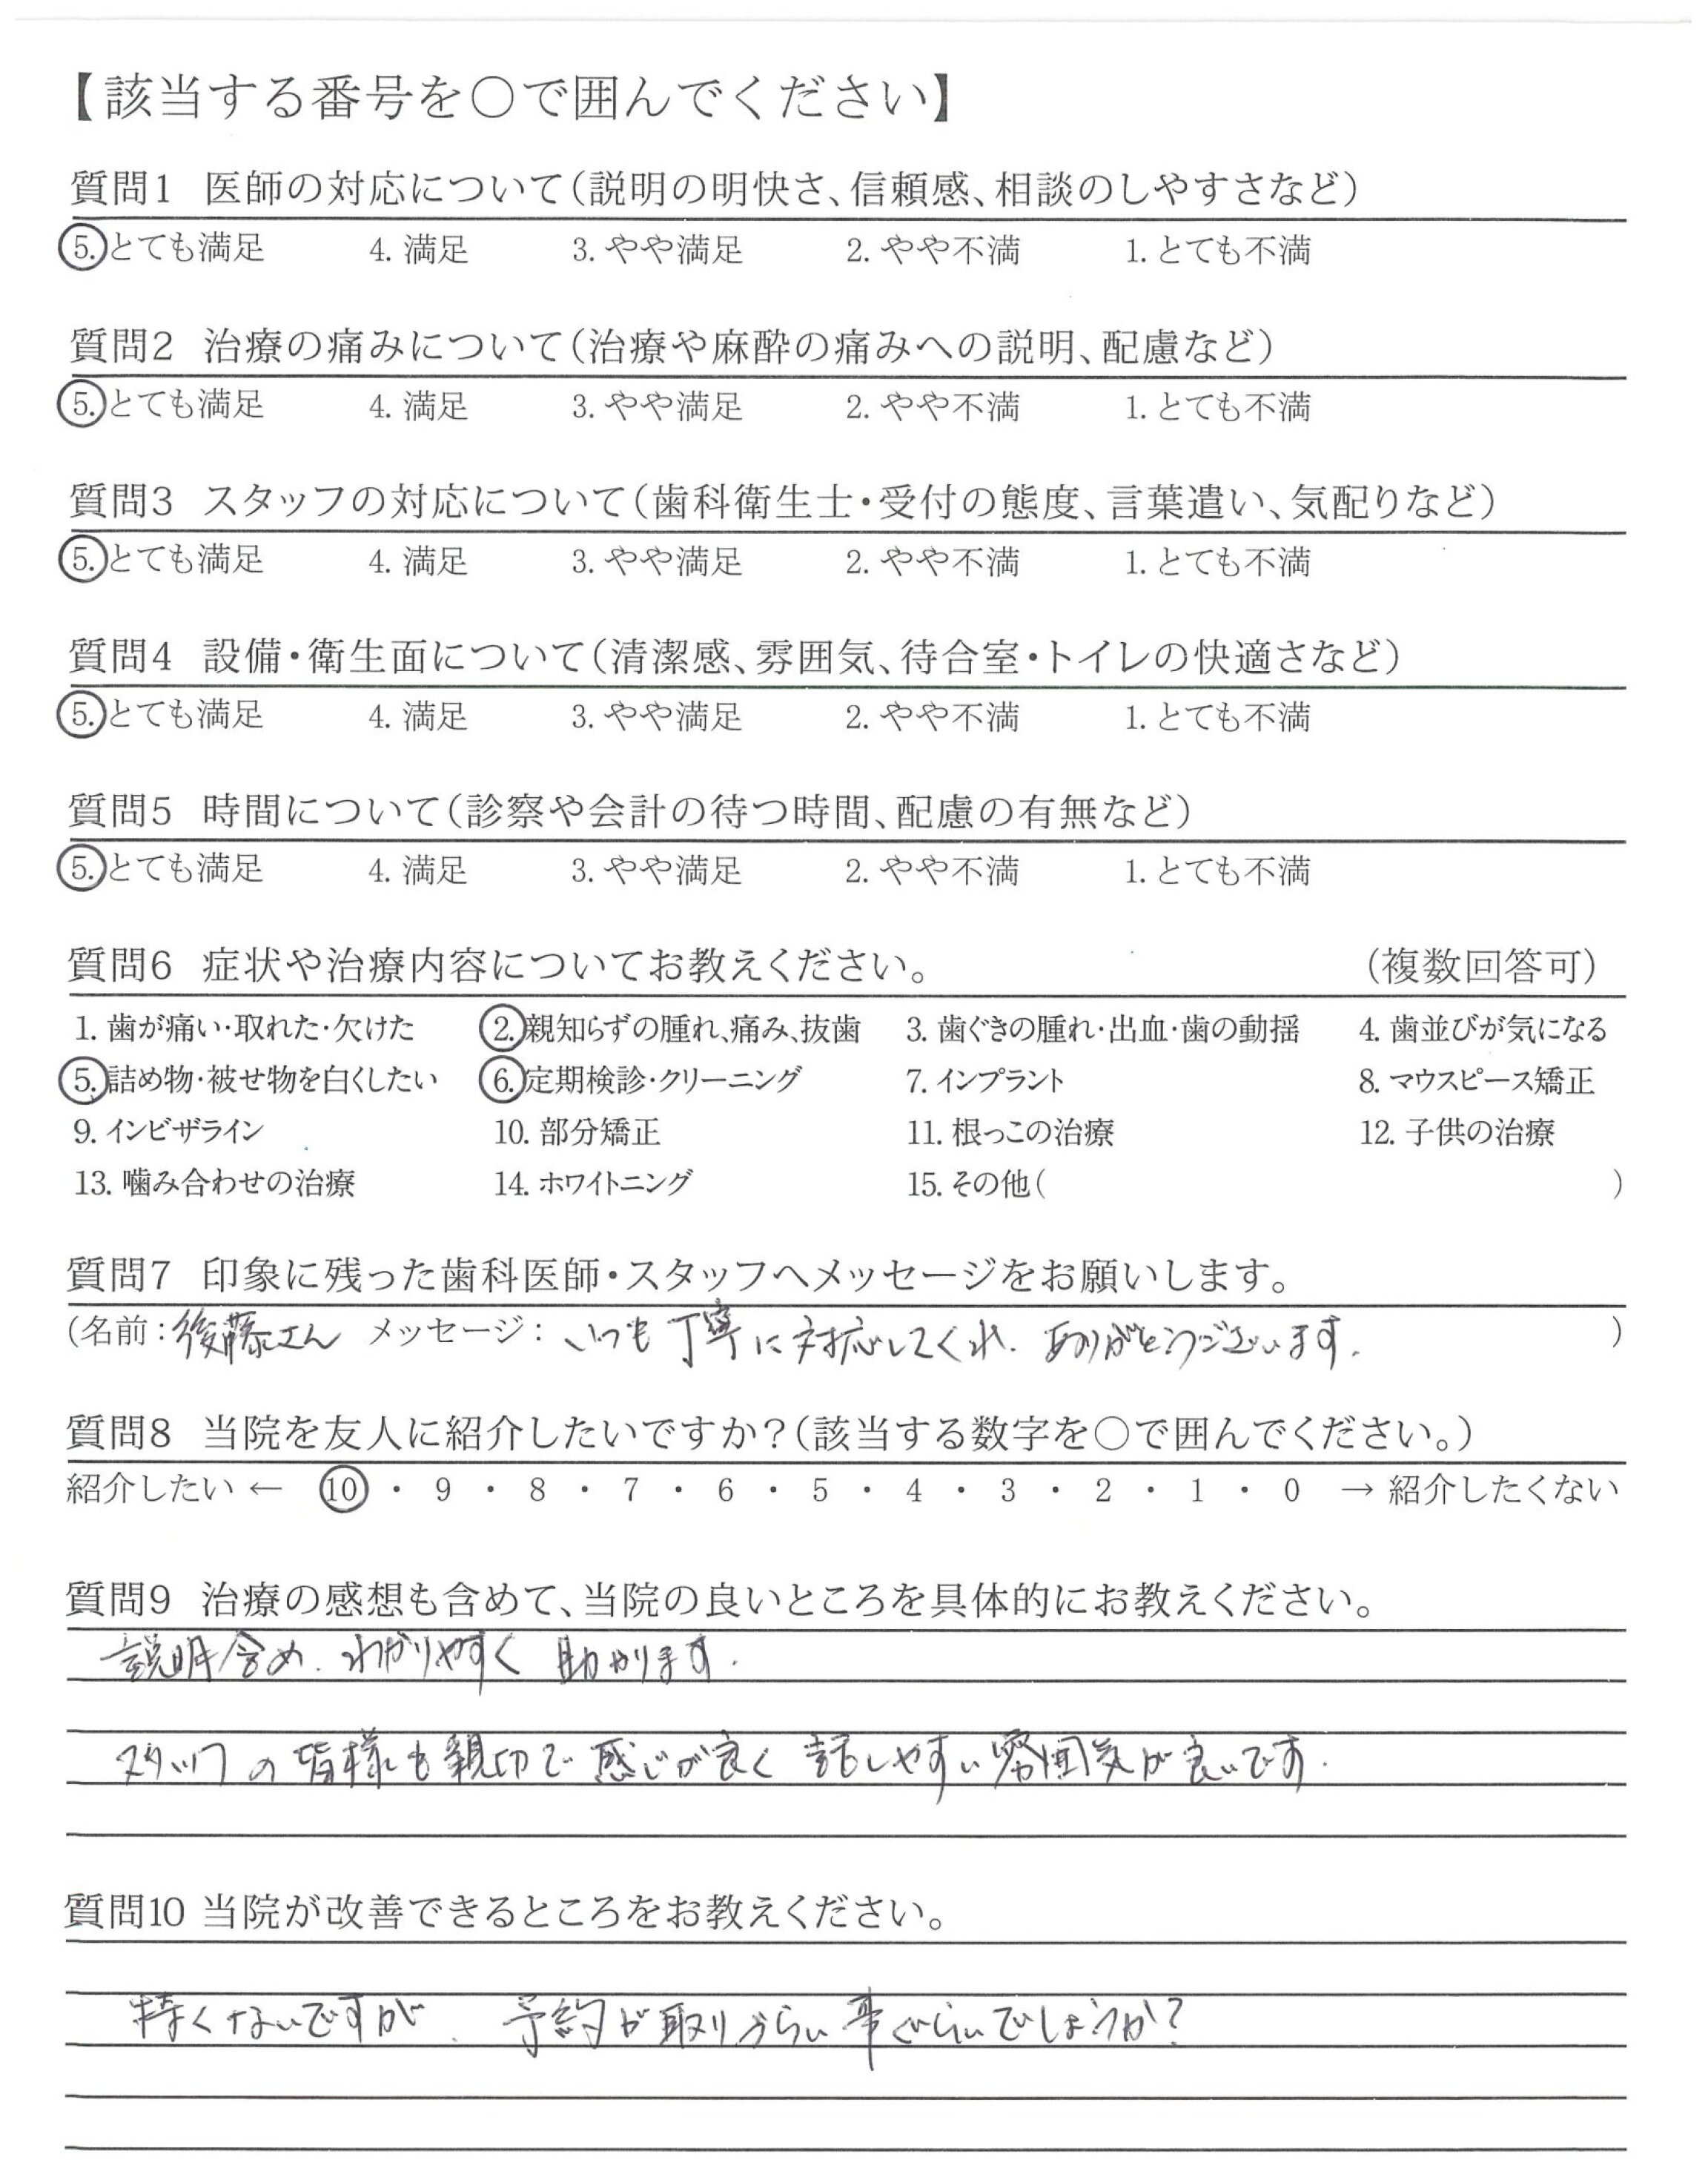 【該当する番号を○で囲んでください】
質問1 医師の対応について(説明の明快さ、信頼感、相談のしやすさなど)
5. とても満足 4. 満足 3. やや満足 2. やや不満 1. とても不満
質問2 治療の痛みについて(治療や麻酔の痛みへの説明、配慮など)
5. とても満足 4. 満足 3. やや満足 2. やや不満 1. とても不満
質問3 スタッフの対応について(歯科衛生士・受付の態度、言葉遣い、気配りなど)
5. とても満足 4. 満足 3. やや満足 2. やや不満 1. とても不満
質問4 設備・衛生面について(清潔感、雰囲気、待合室・トイレの快適さなど)
5. とても満足 4. 満足 3. やや満足 2. やや不満 1. とても不満
質問5 時間について(診察や会計の待つ時間、配慮の有無など)
5. とても満足 4. 満足 3. やや満足 2. やや不満 1. とても不満
質問6 症状や治療内容についてお教えください。 (複数回答可)
1. 歯が痛い・取れた・欠けた 2. 親知らずの腫れ、痛み、抜歯 3. 歯ぐきの腫れ・出血・歯の動揺 4. 歯並びが気になる
5. 詰め物・被せ物を白くしたい 6. 定期検診・クリーニング 7. インプラント 8. マウスピース矯正
9. インビザライン 10. 部分矯正 11. 根っこの治療 12. 子供の治療
13. 噛み合わせの治療 14. ホワイトニング 15. その他( )
質問7 印象に残った歯科医師・スタッフへメッセージをお願いします。
(名前:後藤さん メッセージ: いつも丁寧に対応してくれ、ありがとうございます。 )
質問8 当院を友人に紹介したいですか?(該当する数字を○で囲んでください。)
紹介したい ← 10 ・ 9 ・ 8 ・ 7 ・ 6 ・ 5 ・ 4 ・ 3 ・ 2 ・ 1 ・ 0 → 紹介したくない
質問9 治療の感想も含めて、当院の良いところを具体的にお教えください。
説明含め、わかりやすく助かります。
スタッフの皆様も親切で感じが良く話しやすい雰囲気が良いです。
質問10 当院が改善できるところをお教えください。
特くないですが、予約が取りづらい事ぐらいでしょうか?